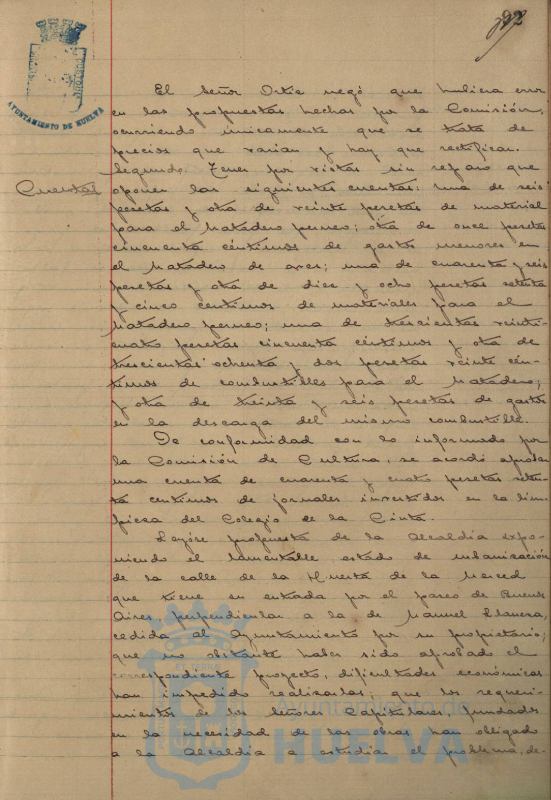 22
AYUNTAMIENTO DE HUELVA
El Señor Ortiz negó que hubiera error
en las propuestas hechas por la Comisión,
ocurriendo únicamente que se trata de
precios que varían y hay que rectificar.
Segundo. Tener por vistas sin reparo que
Cuentas
oponer las siguientes cuentas: una de seis
pesetas y otra de veinte pesetas de material
para el Matadero perneo; otra de once pesetas
cincuenta céntimos de gastos menores en
el Matadero de aves; una de cuarenta y seis
pesetas y otra de diez y ocho pesetas setenta
y cinco centimos de materiales para el
Matadero perneo; una de trescientas veinti-
cuatro pesetas cincuenta céntimos y otra de
trescientas ochenta y dos pesetas veinte cén-
timos de combustibles para el Matadero;
y otra de treinta y seis pesetas de gastos
en la descarga del mismo combustible.
De conformidad con lo informado por
la Comisión de Cultura, se acordó aprobar
una cuenta de cuarenta y cuatro pesetas seten-
ta centimos de jornales invertidos en la lim-
pieza del Colegio de la Cinta.
Leyóse propuesta de la Alcaldía expo-
niendo el lamentable estado de urbanización
de la calle de la Huerta de la Merced
que tiene su entrada por el paseo de Buenos
Aires, perpendicular a la de Manuel
cedida al Ayuntamiento por su propietario;
que no obstante haber sido aprobado el
correspondiente proyecto, dificultades económicas
han impedido realizarlas; que los requeri-
mientos de los Señores Capitulares, fundados
en la necesidad de las obras han obligado
a la Alcaldía a estudiar el problema, de-
Ayuntamiento de
HUELVA